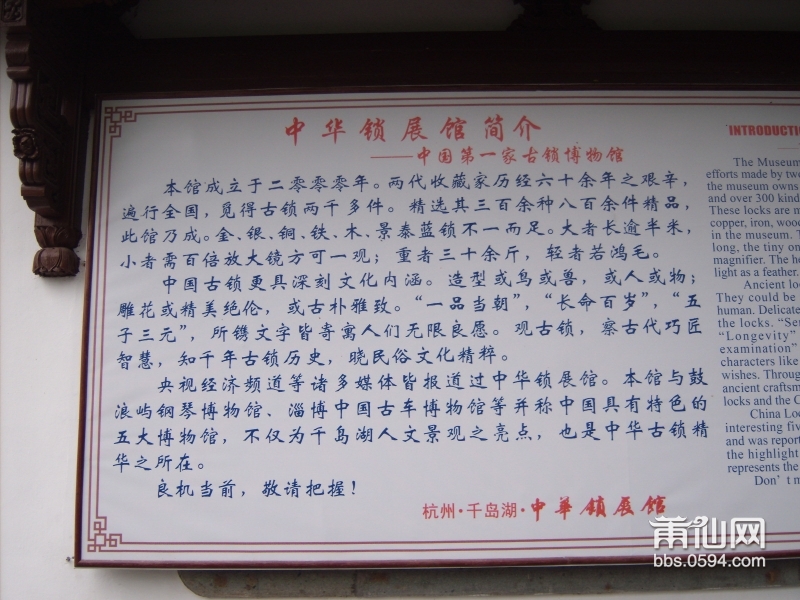 中华锁展馆简介
——中国第一家古锁博物馆
本馆成立于二零零零年。两代收藏家历经六十余年之艰辛，
遍行全国，觅得古锁两千多件。精选其三百余种八百余件精品，
此馆乃成。金、银、铜、铁、木、景泰蓝锁不一而足。大者长逾半米，
小者需百倍放大镜方可一观；重者三十余斤，轻者若鸿毛。
中国古锁更具深刻文化内涵。造型或鸟或兽，或人或物；
雕花或精美绝伦，或古朴雅致。“一品当朝”，“长命百岁”，“五
子三元”，所镌文字皆寄寓人们无限良愿。观古锁，察古代巧匠
智慧，知千年古锁历史，晓民俗文化精粹。
央视经济频道等诸多媒体皆报道过中华锁展馆。本馆与鼓
浪屿钢琴博物馆、淄博中国古车博物馆等并称中国具有特色的
五大博物馆，不仅为千岛湖人文景观之亮点，也是中华古锁精
华之所在。
良机当前，敬请把握！
杭州·千岛湖·中华锁展馆
INTRODUCTION
The Museum
efforts made by two
the museum owns
and over 300 kind
These locks are m
copper, iron, wood
in the museum. T
long, the tiny on
magnifier. The he
light as a feather.
Ancient loc
They could be
human. Delicate
the locks. “Sen
“Longevity”
examination”
characters like
wishes. Through
ancient craftsm
locks and the C
China Loc
interesting five
and was report
the highlight
represents the
Don’t m
莆仙网
bbs.0594.com